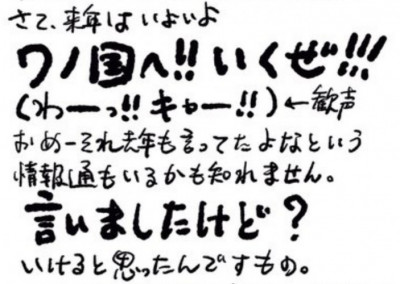 さて、来年はいよいよ
ワノ国へ!!いくぜ!!!
(わーっ!!キャー!!)←歓声
おめーそれ去年も言ってたよなという
情報通もいるかも知れません。
言いましたけど?
いけると思ったんですもの。